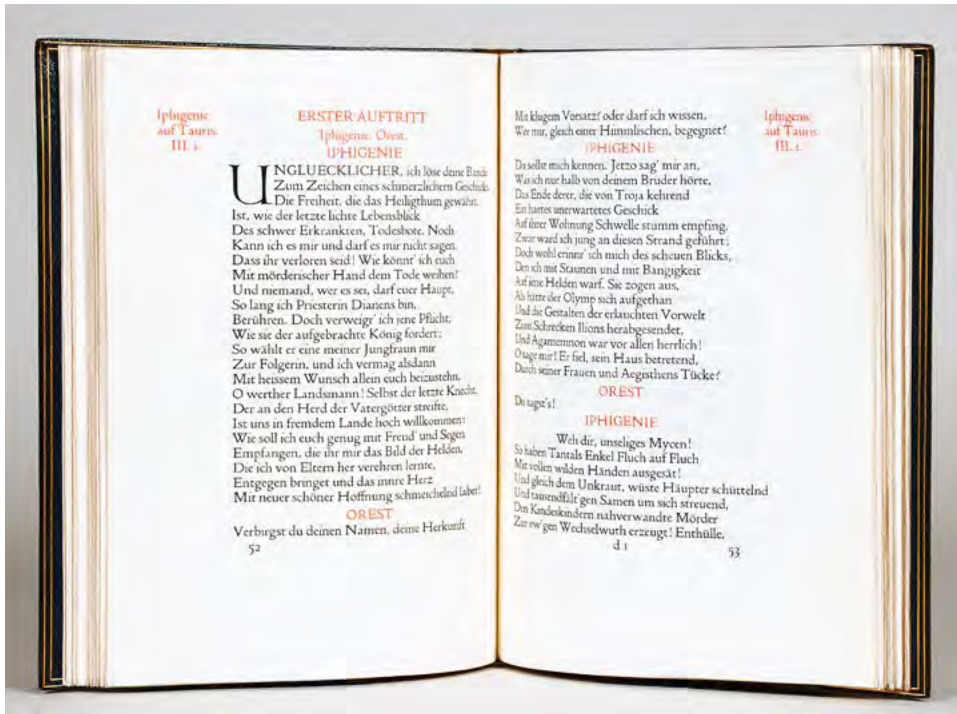 Iphigenie
auf Tauris.
III. 1.
ERSTER AUFTRITT
Iphigenie. Orest.
IPHIGENIE
UNGLUECKLICHER, ich löse deine Bande
Zum Zeichen eines schmerzlichern Geschicks.
Die Freiheit, die das Heiligthum gewährt,
Ist, wie der letzte lichte Lebensblick
Des schwer Erkrankten, Todesbote. Noch
Kann ich es mir und darf es mir nicht sagen,
Dass ihr verloren seid! Wie könnt' ich euch
Mit mörderischer Hand dem Tode weihen?
Und niemand, wer es sei, darf euer Haupt,
So lang ich Priesterin Dianens bin,
Berühren. Doch verweigr' ich jene Pflicht,
Wie sie der aufgebrachte König fordert;
So wählt er eine meiner Jungfraun mir
Zur Folgerin, und ich vermag alsdann
Mit heissem Wunsch allein euch beizustehn.
O werther Landsmann! Selbst der letzte Knecht,
Der an den Herd der Vatergötter streifte,
Ist uns in fremdem Lande hoch willkommen:
Wie soll ich euch genug mit Freud' und Segen
Empfangen, die ihr mir das Bild der Helden,
Die ich von Eltern her verehren lernte,
Entgegen bringet und das innre Herz
Mit neuer schöner Hoffnung schmeichelnd labet!
OREST
Verbirgst du deinen Namen, deine Herkunft
52
Iphigenie
auf Tauris.
III. 1.
Mit klugem Vorsatz? oder darf ich wissen,
Wer mir, gleich einer Himmlischen, begegnet?
IPHIGENIE
Du sollst mich kennen. Jetzo sag' mir an,
Was ich nur halb von deinem Bruder hörte,
Das Ende derer, die von Troja kehrend
Ein hartes unerwartetes Geschick
Auf ihrer Wohnung Schwelle stumm empfing.
Zwar ward ich jung an diesen Strand geführt;
Doch wohl erinnr' ich mich des scheuen Blicks,
Den ich mit Staunen und mit Bangigkeit
Auf jene Helden warf. Sie zogen aus,
Als hätte der Olymp sich aufgethan
Und die Gestalten der erlauchten Vorwelt
Zum Schrecken Ilions herabgesendet,
Und Agamemnon war vor allen herrlich!
O sage mir! Er fiel, sein Haus betretend,
Durch seiner Frauen und Aegisthens Tücke?
OREST
Du sagst's!
IPHIGENIE
Weh dir, unseliges Mycen!
So haben Tantals Enkel Fluch auf Fluch
Mit vollen wilden Händen ausgesät!
Und gleich dem Unkraut, wüste Häupter schüttelnd
Und tausendfält'gen Samen um sich streuend,
Den Kindeskindern nahverwandte Mörder
Zur ew'gen Wechselwuth erzeugt! Enthülle,
d 1
53